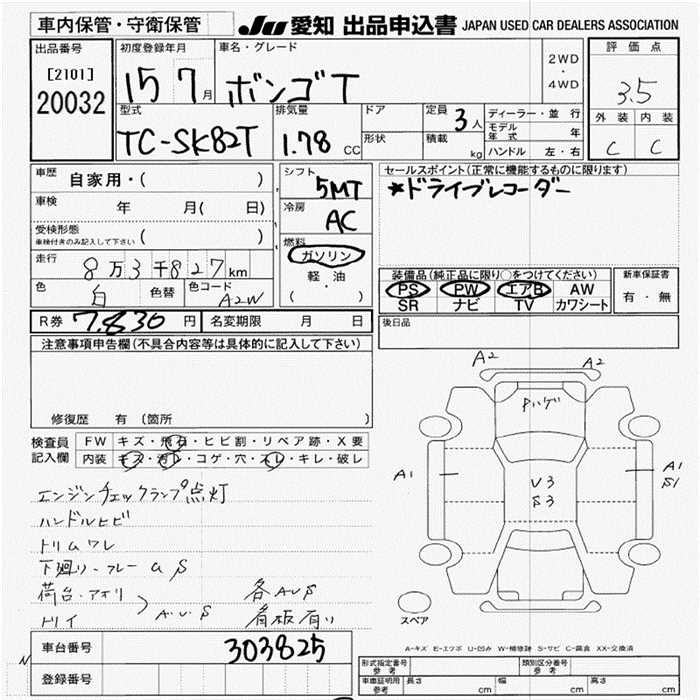 車内保管・守衛保管
JU 愛知 出品申込書 JAPAN USED CAR DEALERS ASSOCIATION
出品番号
[2101]
20032
初度登録年月
15 7月
車名・グレード
ボンゴT
2WD
・
4WD
評価点
3.5
外装 内装
C C
型式
TC-SK82T
排気量
1.78 CC
ドア
形状
定員 3人
積載 kg
ディーラー・並行
モデル年式 年
ハンドル 左・右
車歴 自家用・( )
車検 年 月( 日)
受検形態
車検付きのみ記入して下さい ( )
走行 8万3千827km
色 白 色替 色コード A2W
シフト 5MT
冷房 AC
燃料
ガソリン
軽・油
( )
セールスポイント(正常に機能するものに限ります)
*ドライブレコーダー
装備品(純正品に限り○をつけてください)
PS PW エアB AW
SR ナビ TV カワシート
新車保証書
有・無
R券 7,830円 名変期限 月 日
後日品
注意事項申告欄(不具合内容等は具体的に記入して下さい)
修復歴 有(箇所 )
検査員
記入欄
FW キズ・飛石・ヒビ割・リペア跡・X要
内装 キズ・汚レ・コゲ・穴・スレ・キレ・破レ
エンジンチェックランプ点灯
ハンドルヒビ
トリムワレ
下廻り・フレームS
荷台・アオリ
トリイ
A・U・S
各AUS
看板有り
A2 A2
Pハゲ
A1
U3
S3
A1
S1
スペア
A-キズ E-エクボ U-凹み W-補修跡 S-サビ C-腐食 XX-交換済
車台番号 303825
登録番号
形式指定番号
参考
類別区分番号
参考
車庫証明用
参考
長さ cm 幅 cm 高さ cm
N